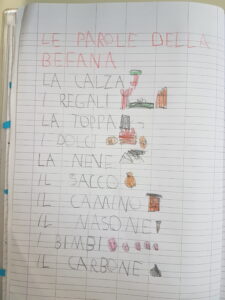 LE PAROLE DELLA
BEFANA
LA CALZA
I REGALI
LA TOPPA
I DOLCI
LA NEVE
IL SACCO
IL CAMINO
IL NASONE
I BIMBI
IL CARBONE